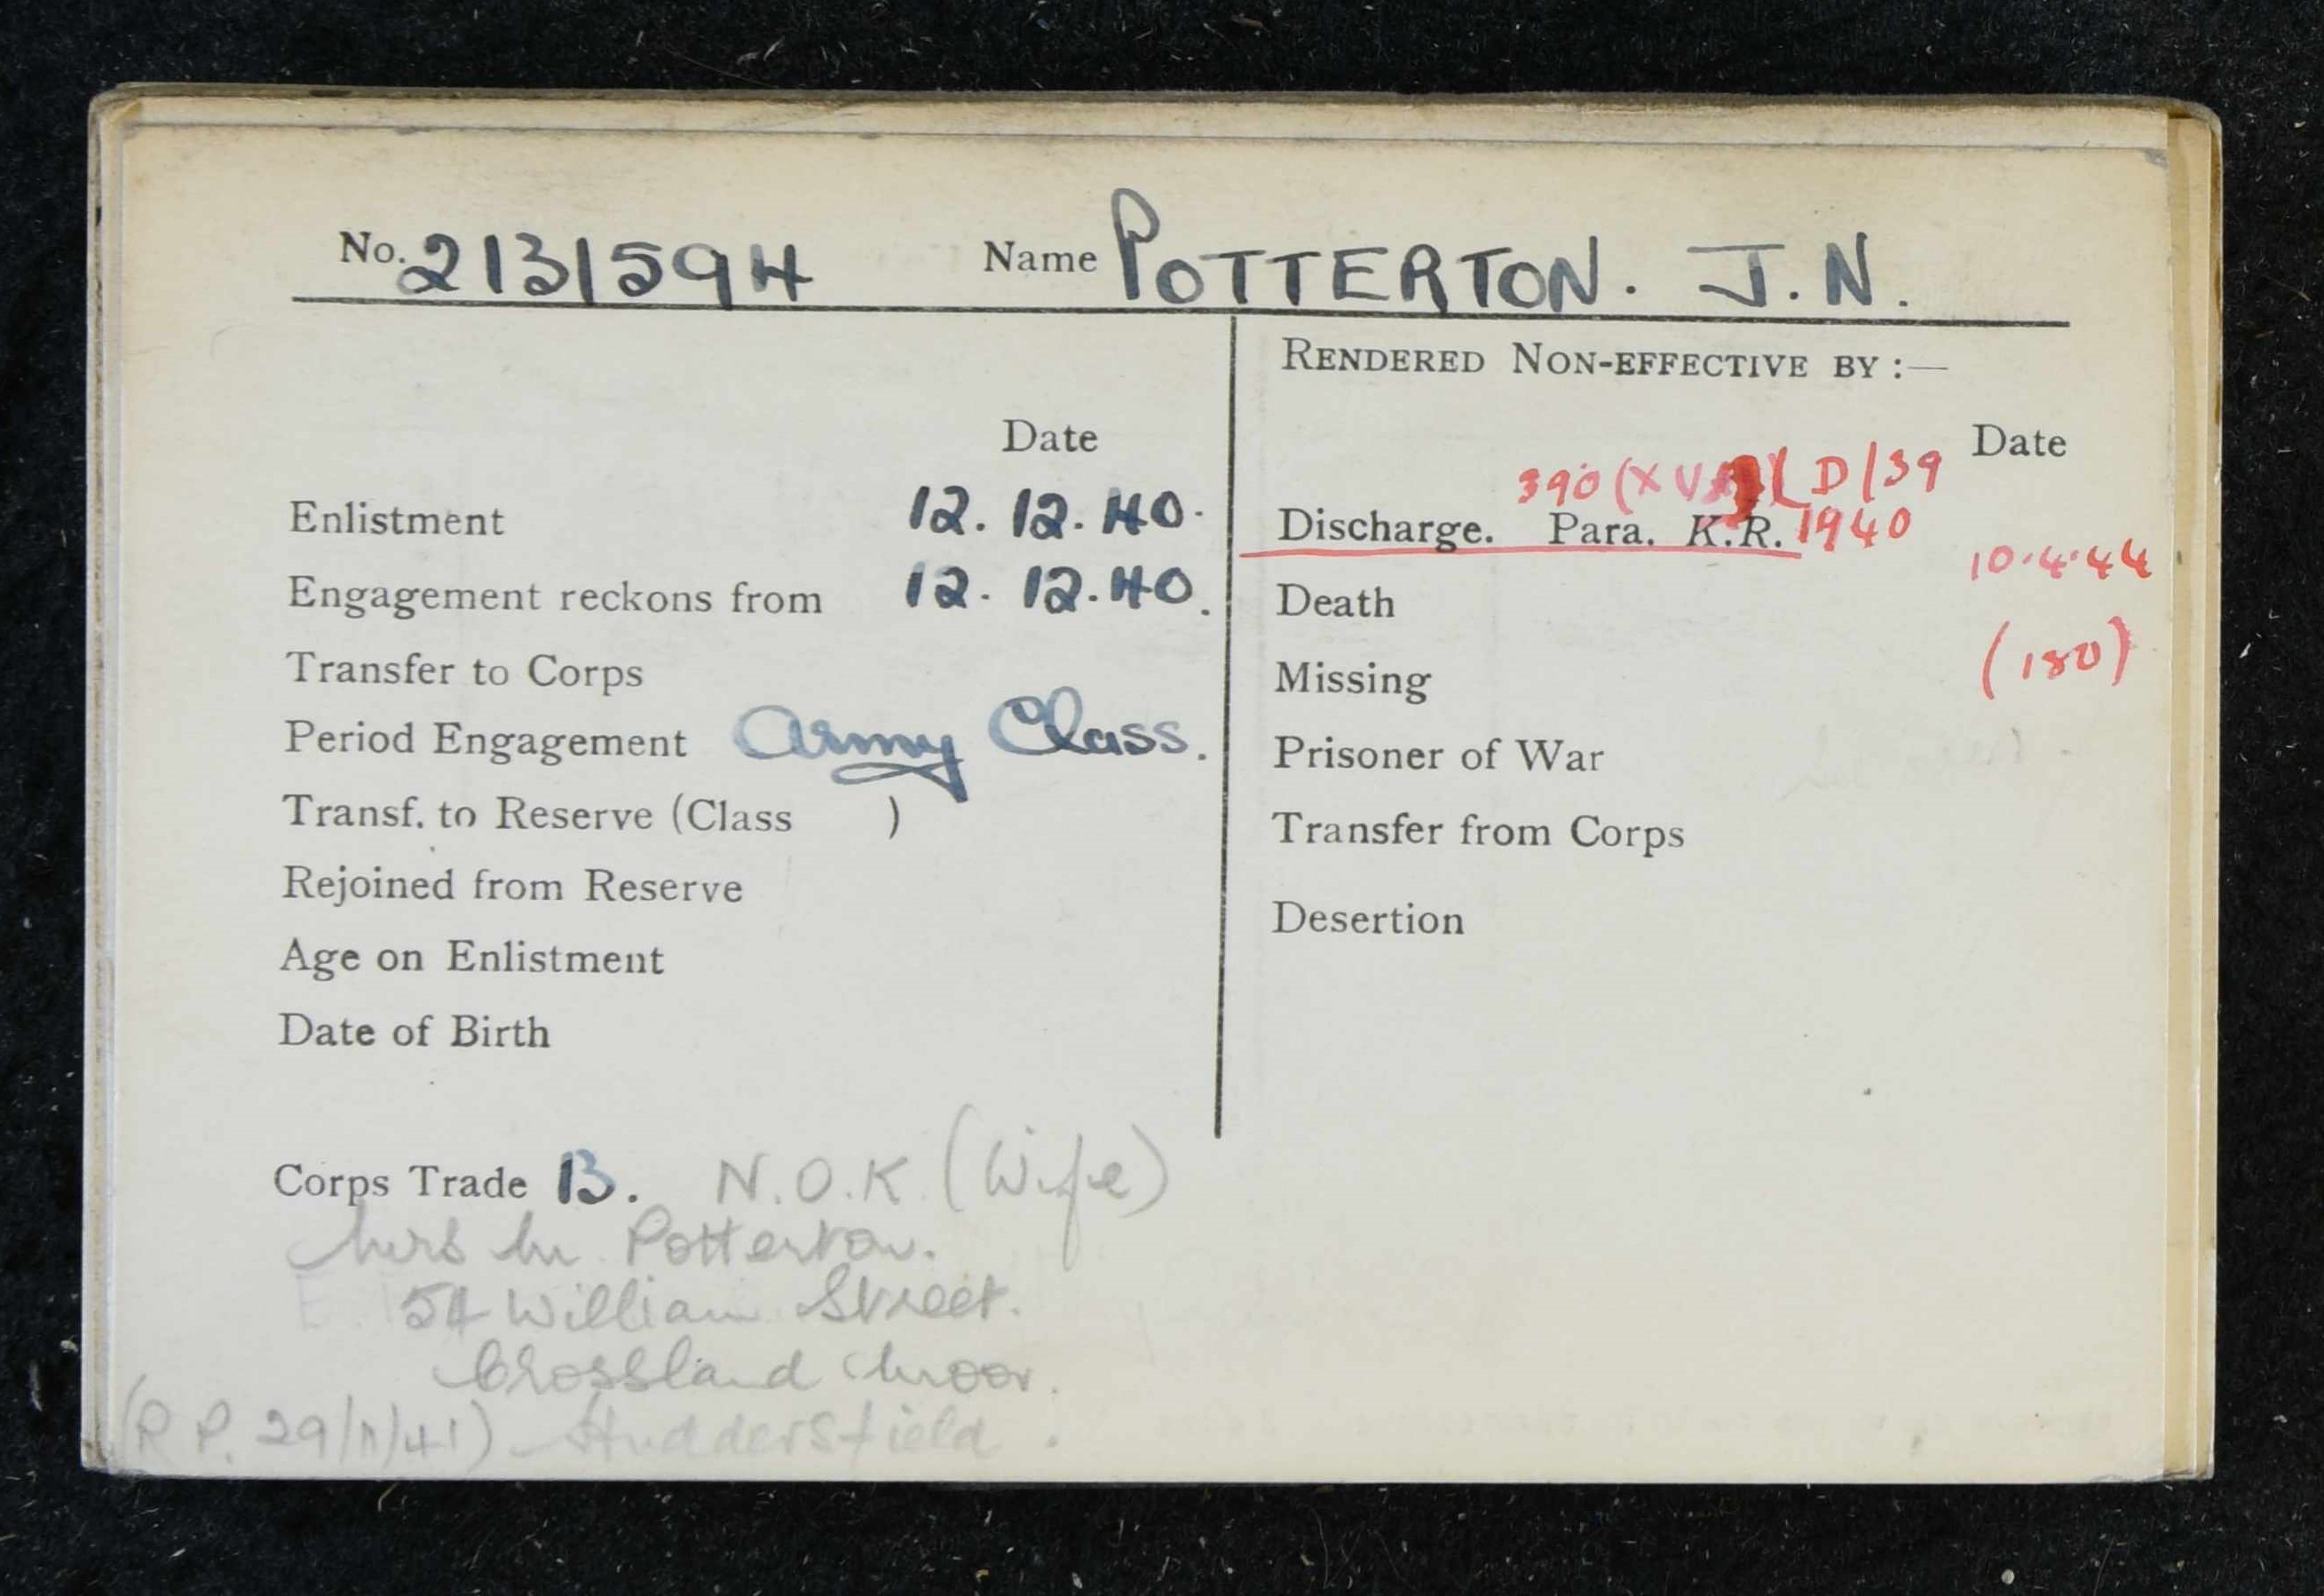 No. 2131594 Name POTTERTON. J. N.
RENDERED NON-EFFECTIVE BY :—
Date
Date
390 (XV D/39
Enlistment 12. 12. 40.
Discharge. Para. K.R. 1940
10.4.44
Engagement reckons from 12. 12. 40.
Death
Transfer to Corps
Missing (180)
Period Engagement Army Class.
Prisoner of War
Transf. to Reserve (Class )
Transfer from Corps
Rejoined from Reserve
Desertion
Age on Enlistment
Date of Birth
Corps Trade B. N.O.K. (Wife)
Mrs M. Potterton.
54 William Street.
Crossland Moor.
(R.P. 29/11/41) Huddersfield.